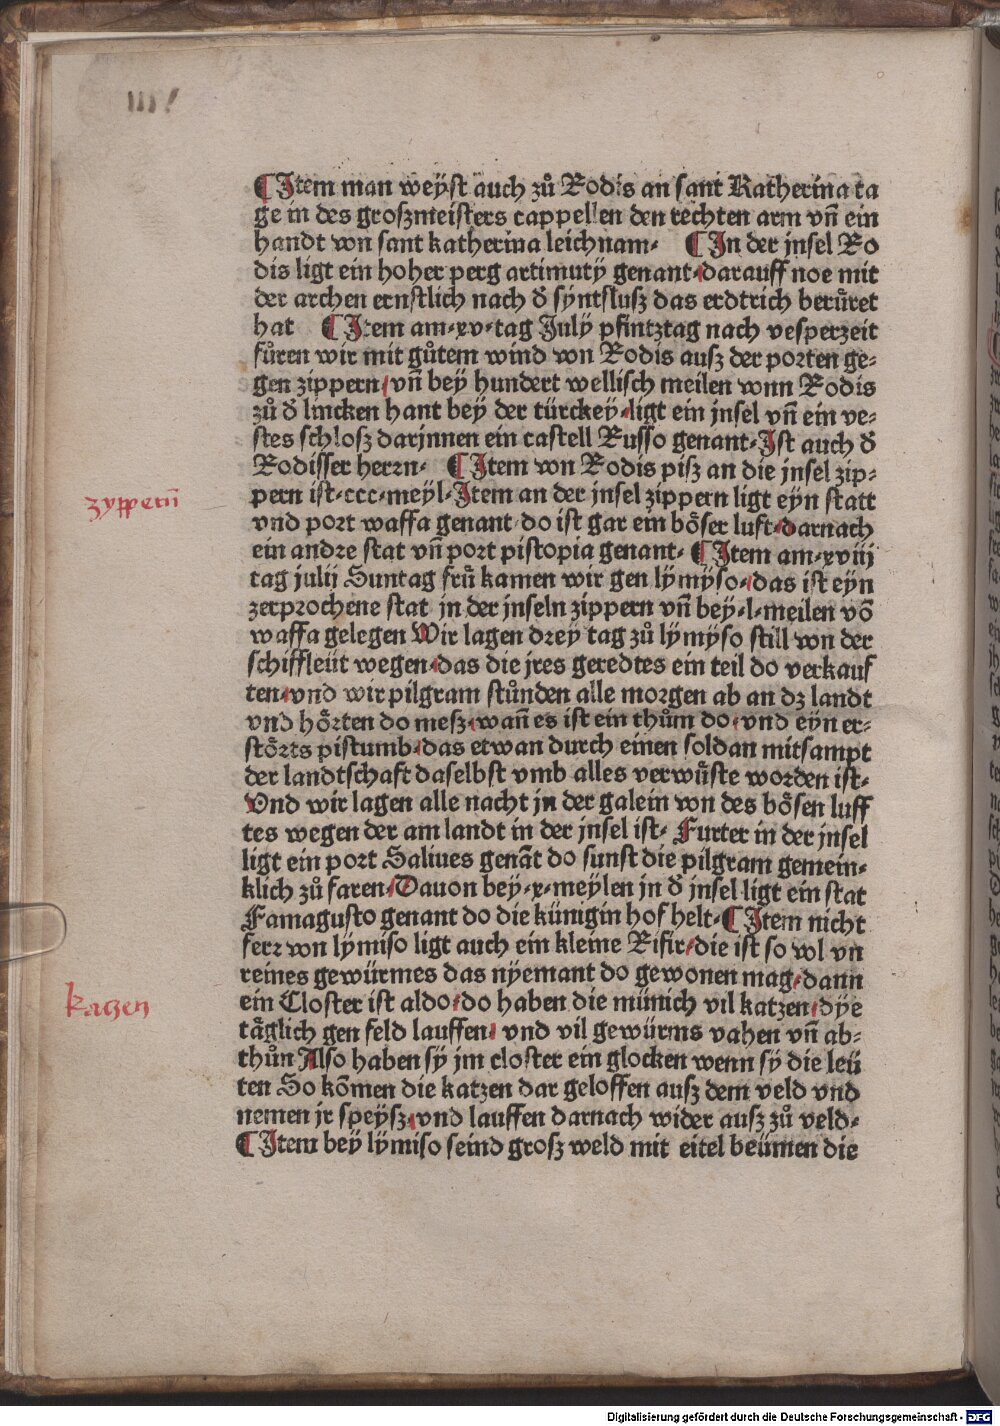 IIII
¶Item man weÿst auch zů Rodis an sant Katherina ta
ge in des groszmeisters cappellen den rechten arm vn̄ ein
handt von sant katherina leichnam. ¶In der jnsel Ro
dis ligt ein hoher perg artimutÿ genant/darauff noe mit
der archen ernstlich nach d̕ sÿntflusz das erdtrich berůret
hat ¶Item am.xv.tag Julÿ pfintztag nach vesperzeit
fůren wir mit gůtem wind von Rodis ausz der porten ge⸗
gen zippern/vn̄ beÿ hundert wellisch meilen vonn Rodis
zů d̕ lincken hant beÿ der türckeÿ/ligt ein jnsel vn̄ ein ve⸗
stes schlosz darjnnen ein castell Russo genant.Ist auch d̕
Rodisser herrn. ¶Item von Rodis pisz an die jnsel zip⸗
pern ist.ccc.meÿl.Item an der jnsel zippern ligt eÿn statt
vnd port waffa genant.do ist gar ein böser luft/darnach
ein andre stat vn̄ port pistopia genant. ¶Item am.xviij
tag julij Suntag frů kamen wir gen lÿmÿso/das ist eÿn
zerprochene stat in der jnseln zippern vn̄ beÿ.l.meilen vō
waffa gelegen Wir lagen dreÿ tag zů lÿmÿso still von der
schiffleüt wegen/das die jres geredtes ein teil do verkauf
ten/vnd wir pilgram stůnden alle morgen ab an dz landt
vnd hörten do mesz/wan̄ es ist ein thům do/vnd eÿn er⸗
störts pistumb/das etwan durch einen soldan mitsampt
der landtschaft daselbst vmb alles verwüste worden ist.
Vnd wir lagen alle nacht jn der galein von des bösen luff
tes wegen der am landt in der jnsel ist. Furter in der jnsel
ligt ein port Saliues genāt do sunst die pilgram gemein⸗
klich zů faren/Dauon beÿ.x.meÿlen jn d̕ jnsel ligt ein stat
Famagusto genant do die künigin hof helt.¶Item nicht
ferr von lÿmiso ligt auch ein kleine Rifir/die ist so vol vn
reines gewürmes das nÿemant do gewonen mag/dann
ein Closter ist aldo/do haben die münich vil katzen/dÿe
täglich gen feld lauffen/ vnd vil gewürms vahen vn̄ ab⸗
thůn Also haben sÿ jm closter ein glocken wenn sÿ die leü
ten So kōmen die katzen dar geloffen ausz dem veld vnd
nemen jr speÿsz/vnd lauffen darnach wider ausz zů veld.
¶Item beÿ lÿmiso seind grosz weld mit eitel beümen die
zyppern̄
kaczen
Digitalisierung gefördert durch die Deutsche Forschungsgemeinschaft - DFG